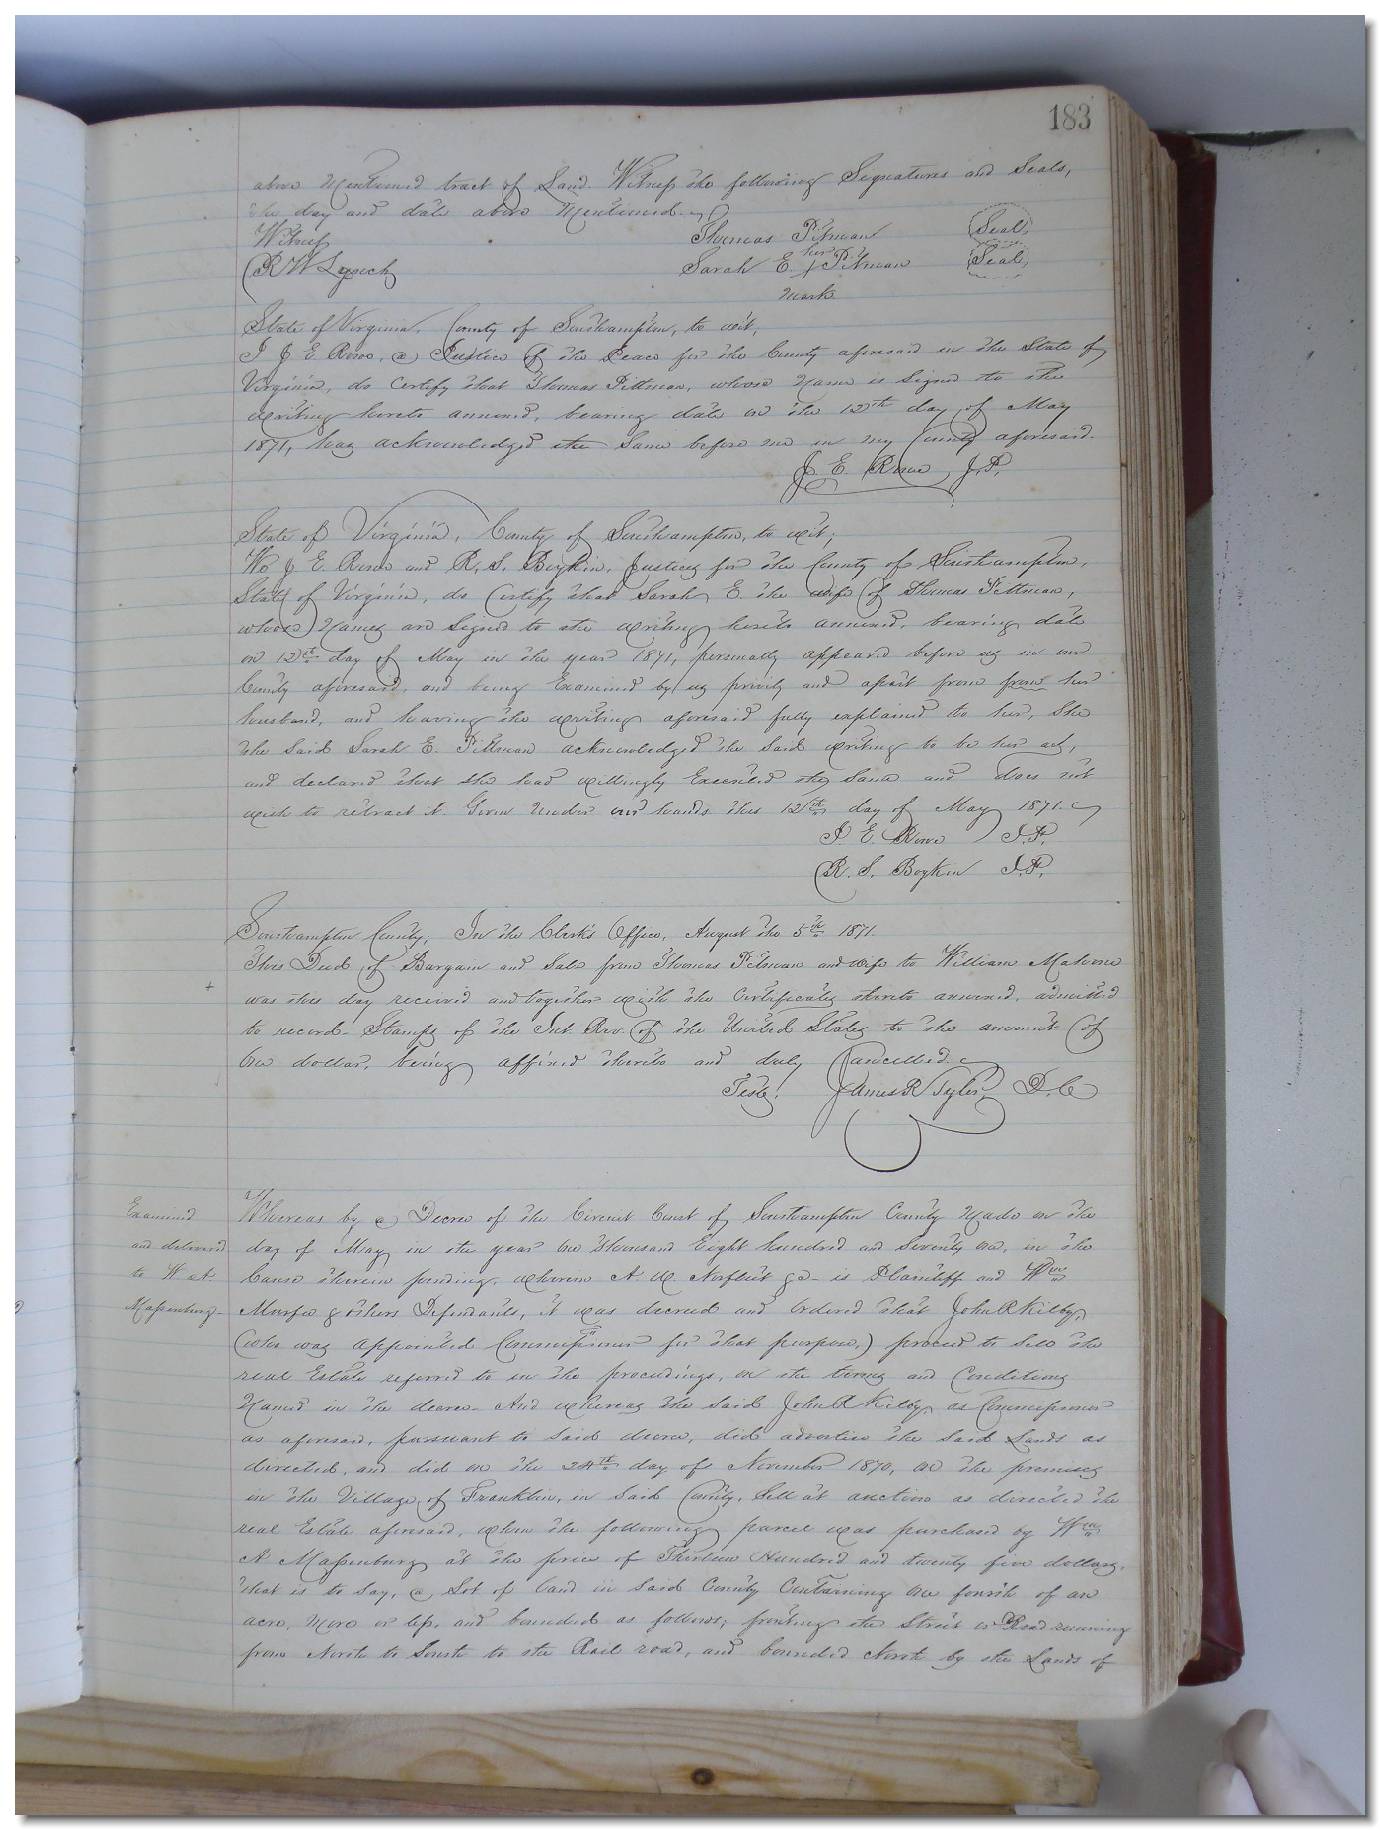 183
above mentioned tract of Land. Witness the following Signatures and Seals,
the day and date above mentioned.
Witness Thomas Pitman Seal
R W Thomas Pitman Seal
Sarah E. her Pitman Seal
mark
State of Virginia, County of Southampton, to wit,
I J E Rowe, a Justice of the Peace for the County aforesaid in the State of
Virginia, do certify that Thomas Pittman, whose Name is Signed to the
writing hereto annexed, bearing date on the 12th day of May
1871, has acknowledged the Same before me in my County aforesaid.
J. E. Rowe J.P.
State of Virginia, County of Southampton, to wit;
We J E Rowe and R. S. Boykin, Justices for the County of Southampton,
State of Virginia, do Certify that Sarah E. the wife of Thomas Pittman,
whose Names are Signed to the writing hereto annexed, bearing date
on 12th day of May in the year 1871, personally appeared before us in our
County aforesaid, and being Examined by us privily and apart from from her
husband, and having the writing aforesaid fully explained to her, She
the Said Sarah E. Pittman acknowledged the Said writing to be her act,
and declared that she had willingly Executed the Same and does not
wish to retract it. Given Under our hands this 12th day of May 1871.
J. E. Rowe J.P.
R. S. Boykin J.P.
Southampton County, In the Clerk's Office, August the 5th 1871.
This Deed of Bargain and Sale from Thomas Pitman and wife to William Malone
was this day received and together with the Certificates thereto annexed, admitted
to record. Stamps of the Int. Rev. of the United States to the amount of
One dollar, being affixed thereto and duly Cancelled.
Teste: James R Tyler, D. C
Examined
and delivered
to W A
Massenburg
Whereas by a Decree of the Circuit Court of Southampton County Made on the
day of May in the year One Thousand Eight hundred and Seventy One, in the
Cause therein pending, wherein A. W. Norfleet &c is Plaintiff and Wm
Murfee & others Defendants, it was decreed and Ordered that John R Kilby,
(who was appointed Commissioner for that purpose,) proceed to Sell the
real Estate referred to in the proceedings, on the terms and Conditions
Named in the decree. And whereas the said John R Kilby, as Commissioner
as aforesaid, pursuant to Said decree, did advertise the Said Lands as
directed, and did on the 24th day of November 1870, on the premises
in the Village of Franklin, in Said County, Sell at auction as directed the
real Estate aforesaid, when the following parcel was purchased by Wm
A Massenburg at the price of Thirteen Hundred and twenty five dollars,
that is to Say, a Lot of Land in Said County Containing One fourth of an
acre, More or less, and bounded as follows; fronting the Street or Road running
from North to South to the Rail road, and bounded North by the Lands of